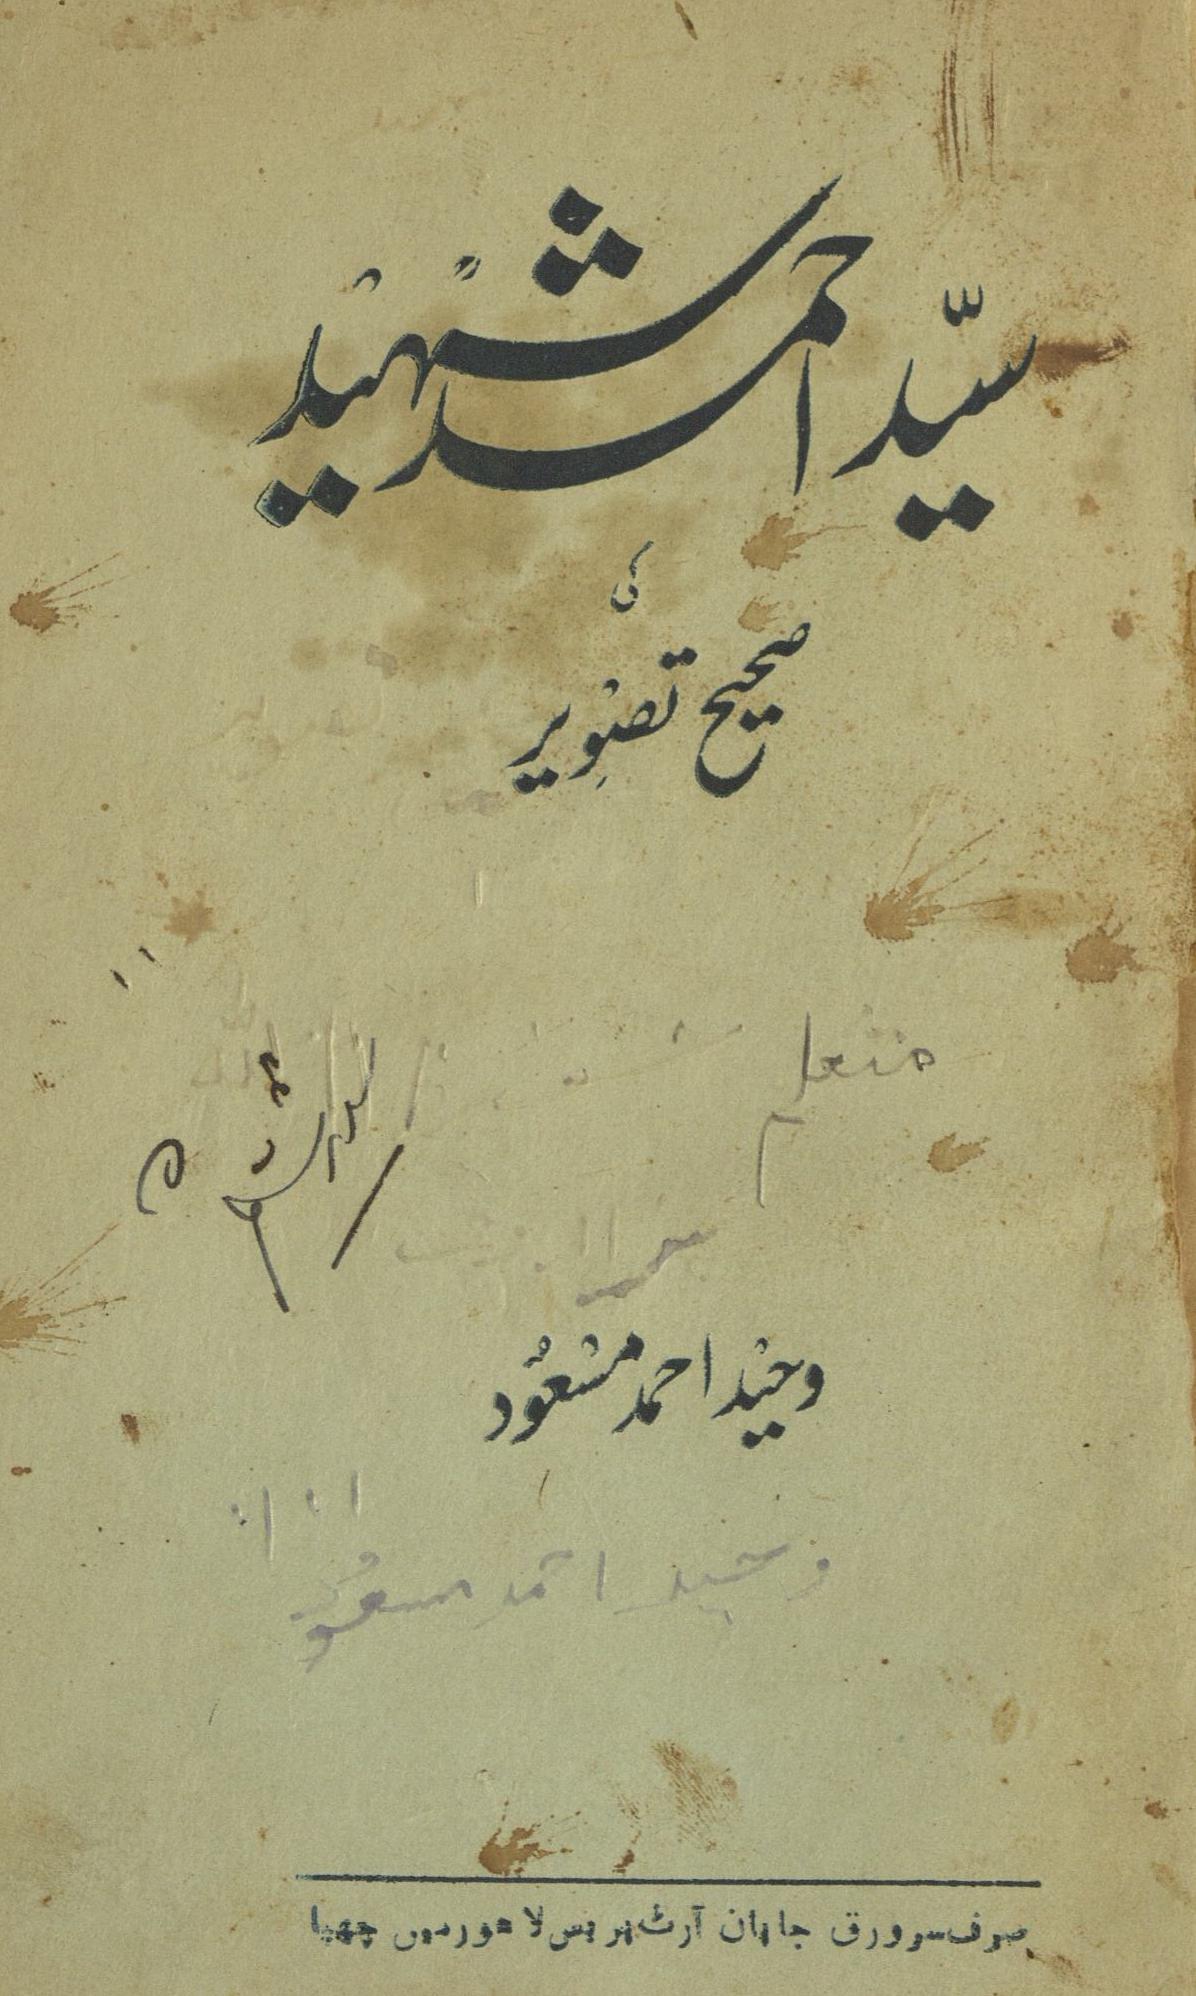 سیّد احمد شہید
کی
صحیح تصویر
متعلم
وحید احمد مسعود
وحید احمد مسعود
صرف سرورق جاپان آرٹ پریس لاہور میں چھپا